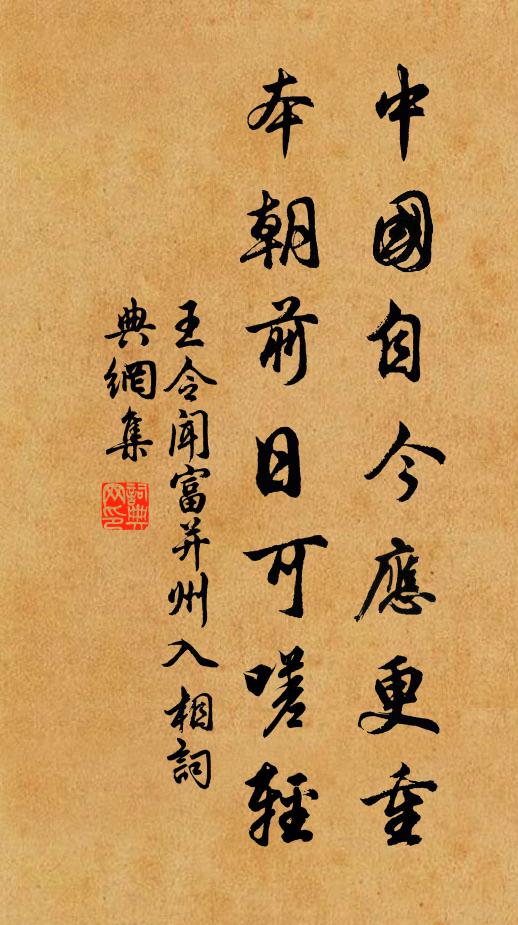 中國自今應更重
本朝前日可嗟輕
王令聞富并州入相詞
典網集
詞典網印